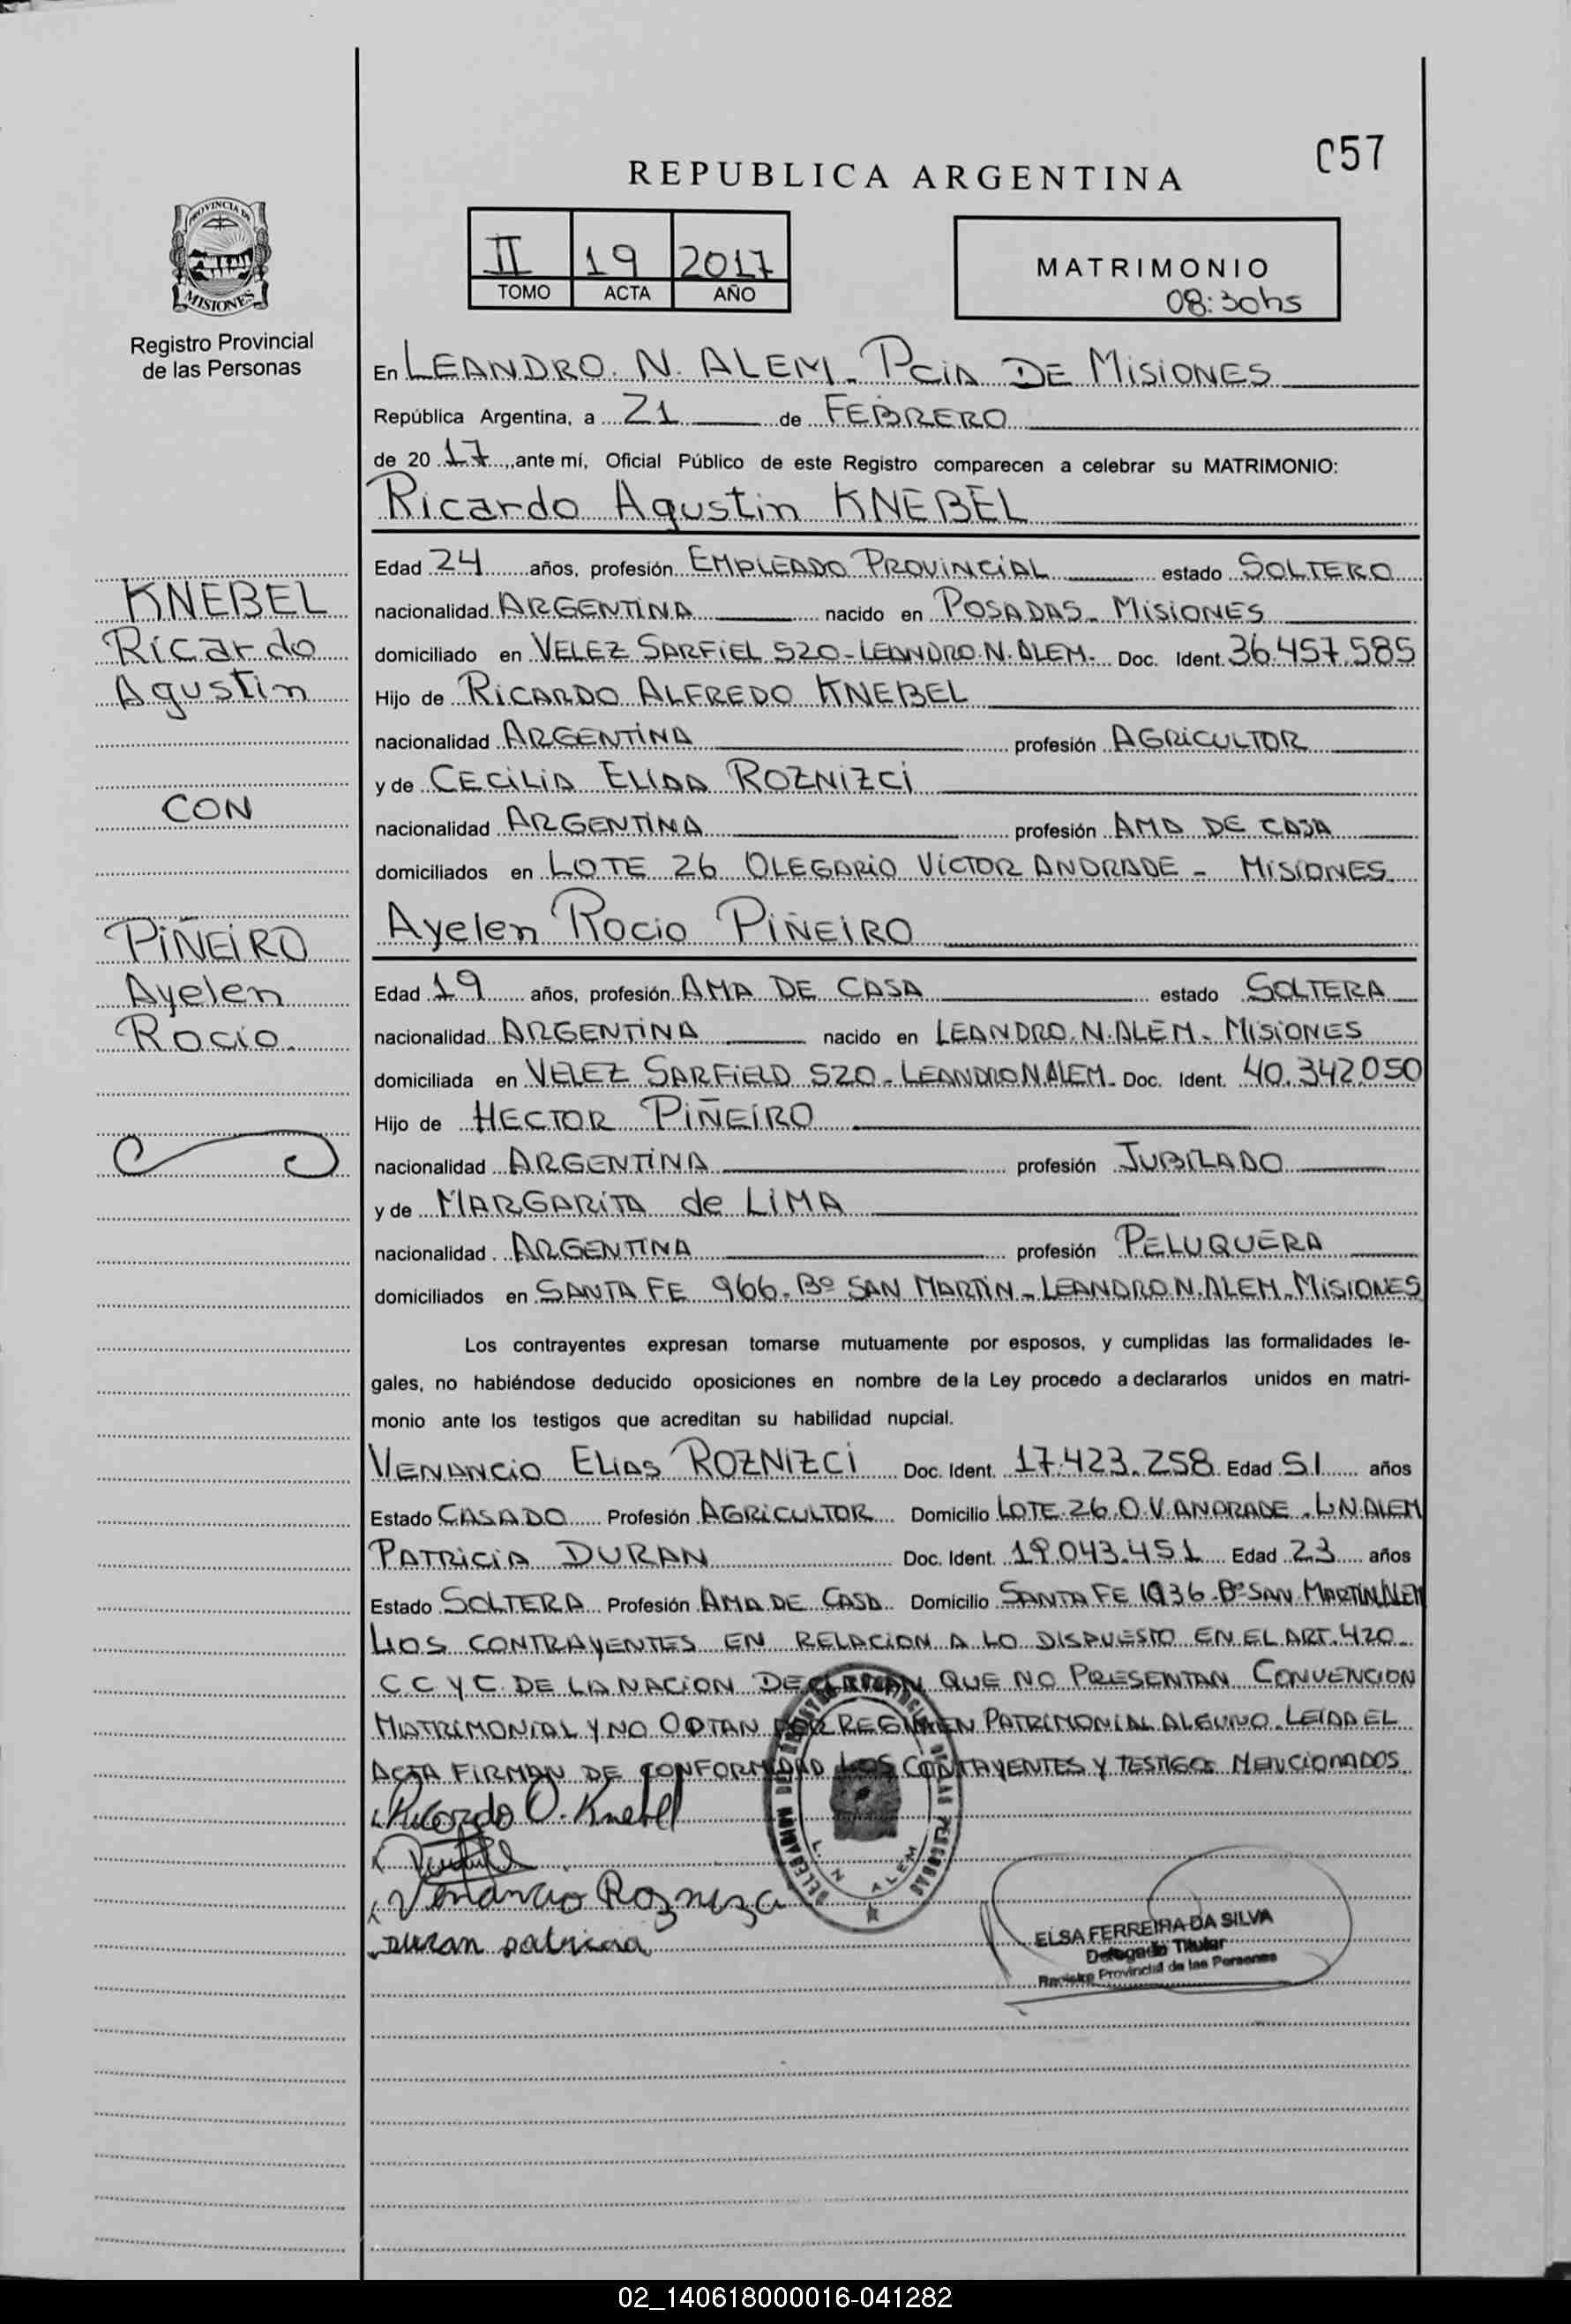 C57
REPUBLICA ARGENTINA
PROVINCIA DE
MISIONES
Registro Provincial
de las Personas
II 19 2017
TOMO ACTA AÑO
MATRIMONIO
08:30hs
En LEANDRO. N. ALEM - Pcia DE MISIONES
República Argentina, a 21 de FEBRERO
de 2017, ante mí, Oficial Público de este Registro comparecen a celebrar su MATRIMONIO:
Ricardo Agustin KNEBEL
Edad 24 años, profesión EMPLEADO PROVINCIAL estado SOLTERO
nacionalidad ARGENTINA nacido en POSADAS - MISIONES
domiciliado en VELEZ SARFIEL 520 - LEANDRO. N. ALEM - Doc. Ident. 36.457.585
Hijo de RICARDO ALFREDO KNEBEL
nacionalidad ARGENTINA profesión AGRICULTOR
y de CECILIA ELIDA ROZNIZCI
nacionalidad ARGENTINA profesión AMA DE CASA
domiciliados en LOTE 26 OLEGARIO VICTOR ANDRADE - MISIONES
Ayelen Rocio PIÑEIRO
Edad 19 años, profesión AMA DE CASA estado SOLTERA
nacionalidad ARGENTINA nacido en LEANDRO. N. ALEM - MISIONES
domiciliada en VELEZ SARFIELD 520 - LEANDRO N ALEM - Doc. Ident. 40.342.050
Hijo de HECTOR PIÑEIRO
nacionalidad ARGENTINA profesión JUBILADO
y de MARGARITA de LIMA
nacionalidad ARGENTINA profesión PELUQUERA
domiciliados en SANTA FE 966 - Bº SAN MARTIN - LEANDRO N. ALEM - MISIONES
Los contrayentes expresan tomarse mutuamente por esposos, y cumplidas las formalidades le-
gales, no habiéndose deducido oposiciones en nombre de la Ley procedo a declararlos unidos en matri-
monio ante los testigos que acreditan su habilidad nupcial.
VENANCIO ELIAS ROZNIZCI Doc. Ident. 17.423.258 Edad 51 años
Estado CASADO Profesión AGRICULTOR Domicilio LOTE 26. O. V. ANDRADE - L N ALEM
PATRICIA DURAN Doc. Ident. 19.043.451 Edad 23 años
Estado SOLTERA Profesión AMA DE CASA Domicilio SANTA FE 1936 - Bº SAN MARTIN ALEM
LOS CONTRAYENTES EN RELACION A LO DISPUESTO EN EL ART. 420
C C Y C DE LA NACION DECLARAN QUE NO PRESENTAN CONVENCION
MATRIMONIAL Y NO OPTAN POR REGIMEN PATRIMONIAL ALGUNO. LEIDA EL
ACTA FIRMAN DE CONFORMIDAD LOS CONTRAYENTES Y TESTIGOS MENCIONADOS.
Ricardo A. Knebel
Venancio Roznizci
Duran patricia
L. N ALEM
ELSA FERREIRA DA SILVA
Delegado Titular
Registro Provincial de las Personas
KNEBEL
Ricardo
Agustin
CON
PIÑEIRO
Ayelen
Rocio.
02_140618000016-041282